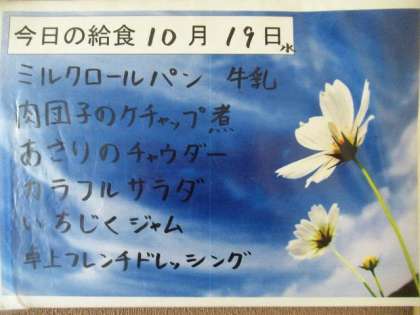 今日の給食 10月 19日水
ミルクロールパン 牛乳
肉団子のケチャップ煮
あさりのチャウダー
カラフルサラダ
いちじくジャム
卓上フレンチドレッシング